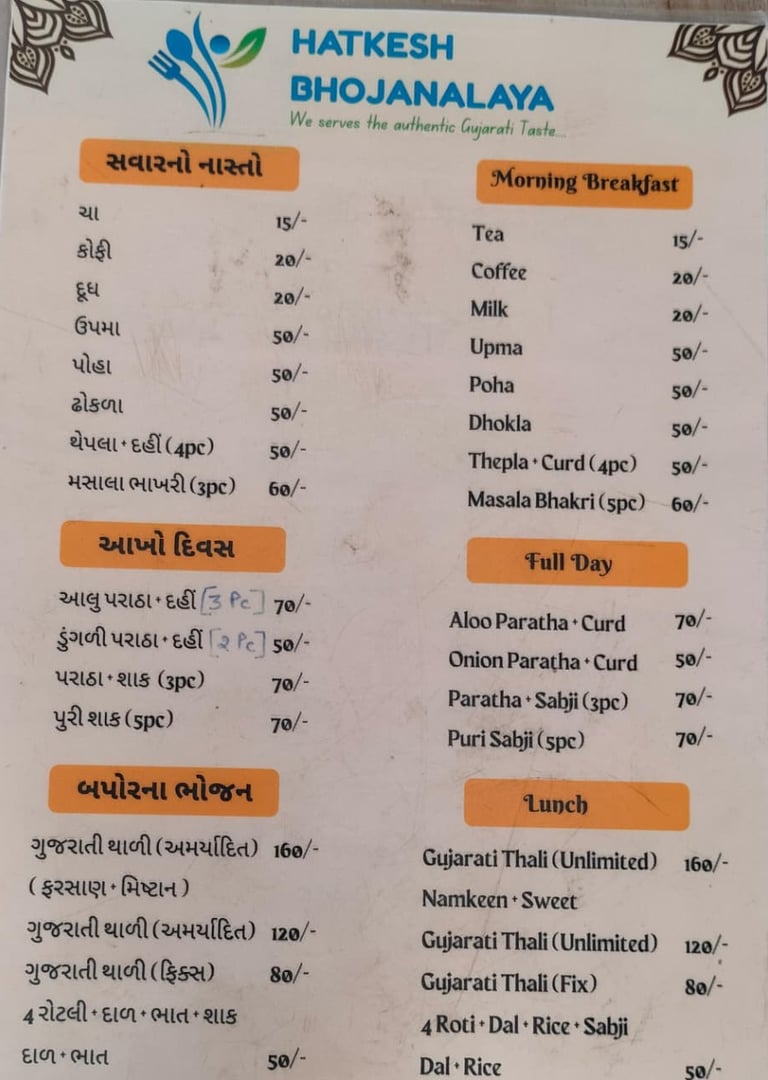 HATKESH
BHOJANALAYA
We serves the authentic Gujarati Taste....
સવારનો નાસ્તો
ચા 15/-
કોફી 20/-
દૂધ 20/-
ઉપમા 50/-
પોહા 50/-
ઢોકળા 50/-
થેપલા + દહીં (4pc) 50/-
મસાલા ભાખરી (3pc) 60/-
આખો દિવસ
આલુ પરાઠા + દહીં [3 Pc] 70/-
ડુંગળી પરાઠા + દહીં [2 Pc] 50/-
પરાઠા + શાક (3pc) 70/-
પુરી શાક (5pc) 70/-
બપોરના ભોજન
ગુજરાતી થાળી (અમર્યાદિત) 160/-
( ફરસાણ + મિષ્ટાન )
ગુજરાતી થાળી (અમર્યાદિત) 120/-
ગુજરાતી થાળી (ફિક્સ) 80/-
4 રોટલી + દાળ + ભાત + શાક
દાળ + ભાત 50/-
Morning Breakfast
Tea 15/-
Coffee 20/-
Milk 20/-
Upma 50/-
Poha 50/-
Dhokla 50/-
Thepla + Curd (4pc) 50/-
Masala Bhakri (5pc) 60/-
Full Day
Aloo Paratha + Curd 70/-
Onion Paratha + Curd 50/-
Paratha + Sabji (3pc) 70/-
Puri Sabji (5pc) 70/-
Lunch
Gujarati Thali (Unlimited) 160/-
Namkeen + Sweet
Gujarati Thali (Unlimited) 120/-
Gujarati Thali (Fix) 80/-
4 Roti + Dal + Rice + Sabji
Dal + Rice 50/-